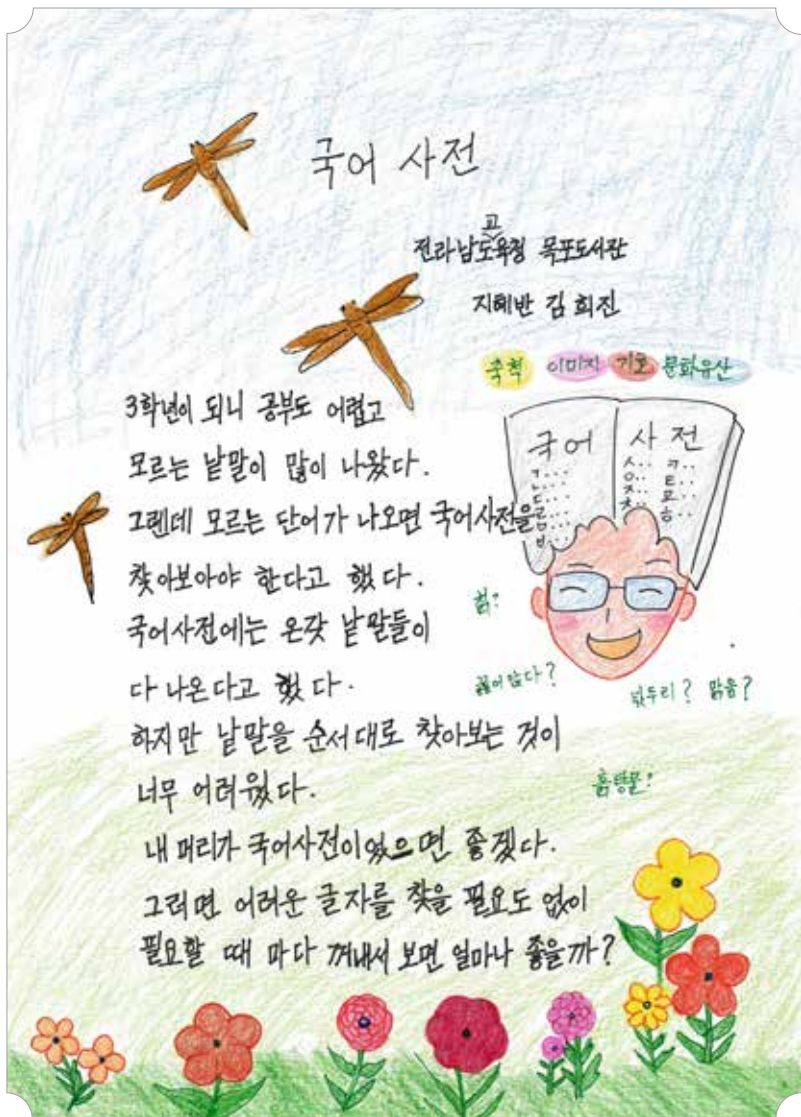 국어 사전
전라남도교육청 목포도서관
지혜반 김희진
축척 이미지 기호 문화유산
3학년이 되니 공부도 어렵고
모르는 낱말이 많이 나왔다.
그런데 모르는 단어가 나오면 국어사전을
찾아보아야 한다고 했다.
국어사전에는 온갖 낱말들이
다 나온다고 했다.
하지만 낱말을 순서대로 찾아보는 것이
너무 어려웠다.
내 머리가 국어사전이었으면 좋겠다.
그러면 어려운 글자를 찾을 필요도 없이
필요할 때 마다 꺼내서 보면 얼마나 좋을까?
국어 사전
ㄱ....
ㄴ....
ㄷ....
ㄹ....
ㅁ....
ㅂ...
ㅅ.. ㅋ..
ㅇ.. ㅌ..
ㅈ.. ㅍ..
ㅊ.. ㅎ..
흙?
꿇어앉다?
넋두리? 맑음?
흙탕물?